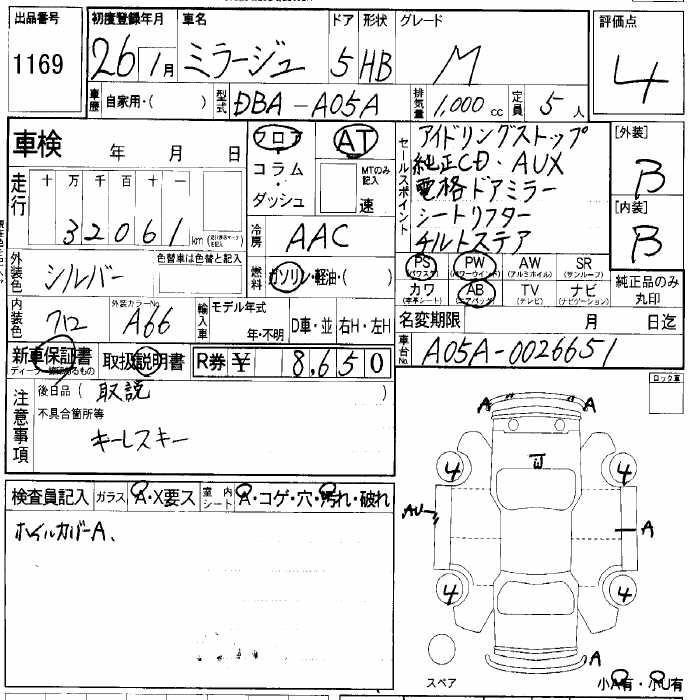 出品番号 初度登録年月 車名 ドア 形状 グレード 評価点
1169 26年1月 ミラージュ 5 HB M 4
車歴 自家用・( ) 型式 DBA-A05A 排気量 1,000cc 定員 5人
車検 年 月 日
フロア AT
コラム・ダッシュ MTのみ記入 速
セールスポイント
アイドリングストップ
純正CD・AUX
電格ドアミラー
シートリフター
チルトステア
[外装] B
[内装] B
走行 十 万 千 百 十 一
32061 km
冷房 AAC
外装色 シルバー 色替車は色替と記入
燃料 ガソリン・軽油・( )
PS (パワステ) PW (パワーウインド) AW (アルミホイル) SR (サンルーフ)
カワ (本革シート) AB (エアバッグ) TV (テレビ) ナビ (ナビゲーション)
純正品のみ丸印
内装色 外装カラーNo. A66
輸入車 モデル年式 年・不明 D車・並 右H・左H
名変期限 月 日迄
新車保証書 取扱説明書 R券 ¥ 8,650
車台No. A05A-0026651
注意事項
後日品 ( 取説 )
不具合箇所等
キーレスキー
ロック車
検査員記入 ガラス A・X要ス 室内シート A・コゲ・穴・汚れ・破れ
ホイルカバーA、
A A
4 4
AU A
4 4
A
スペア
小A有・小U有